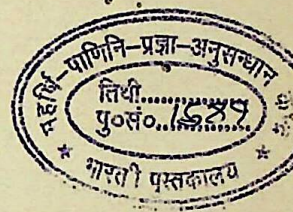 महर्षि-पाणिनि-प्रज्ञा-अनुसन्धान
तिथी..............
पु०सं०.
* भारती पुस्तकालय *